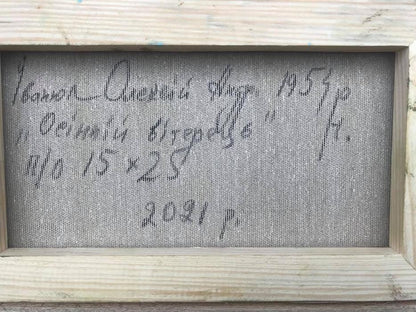 Іванюк Олексій Андр. 1954 р
„Осінній вітерець” /Н.
п/о 15 × 25
2021 р.